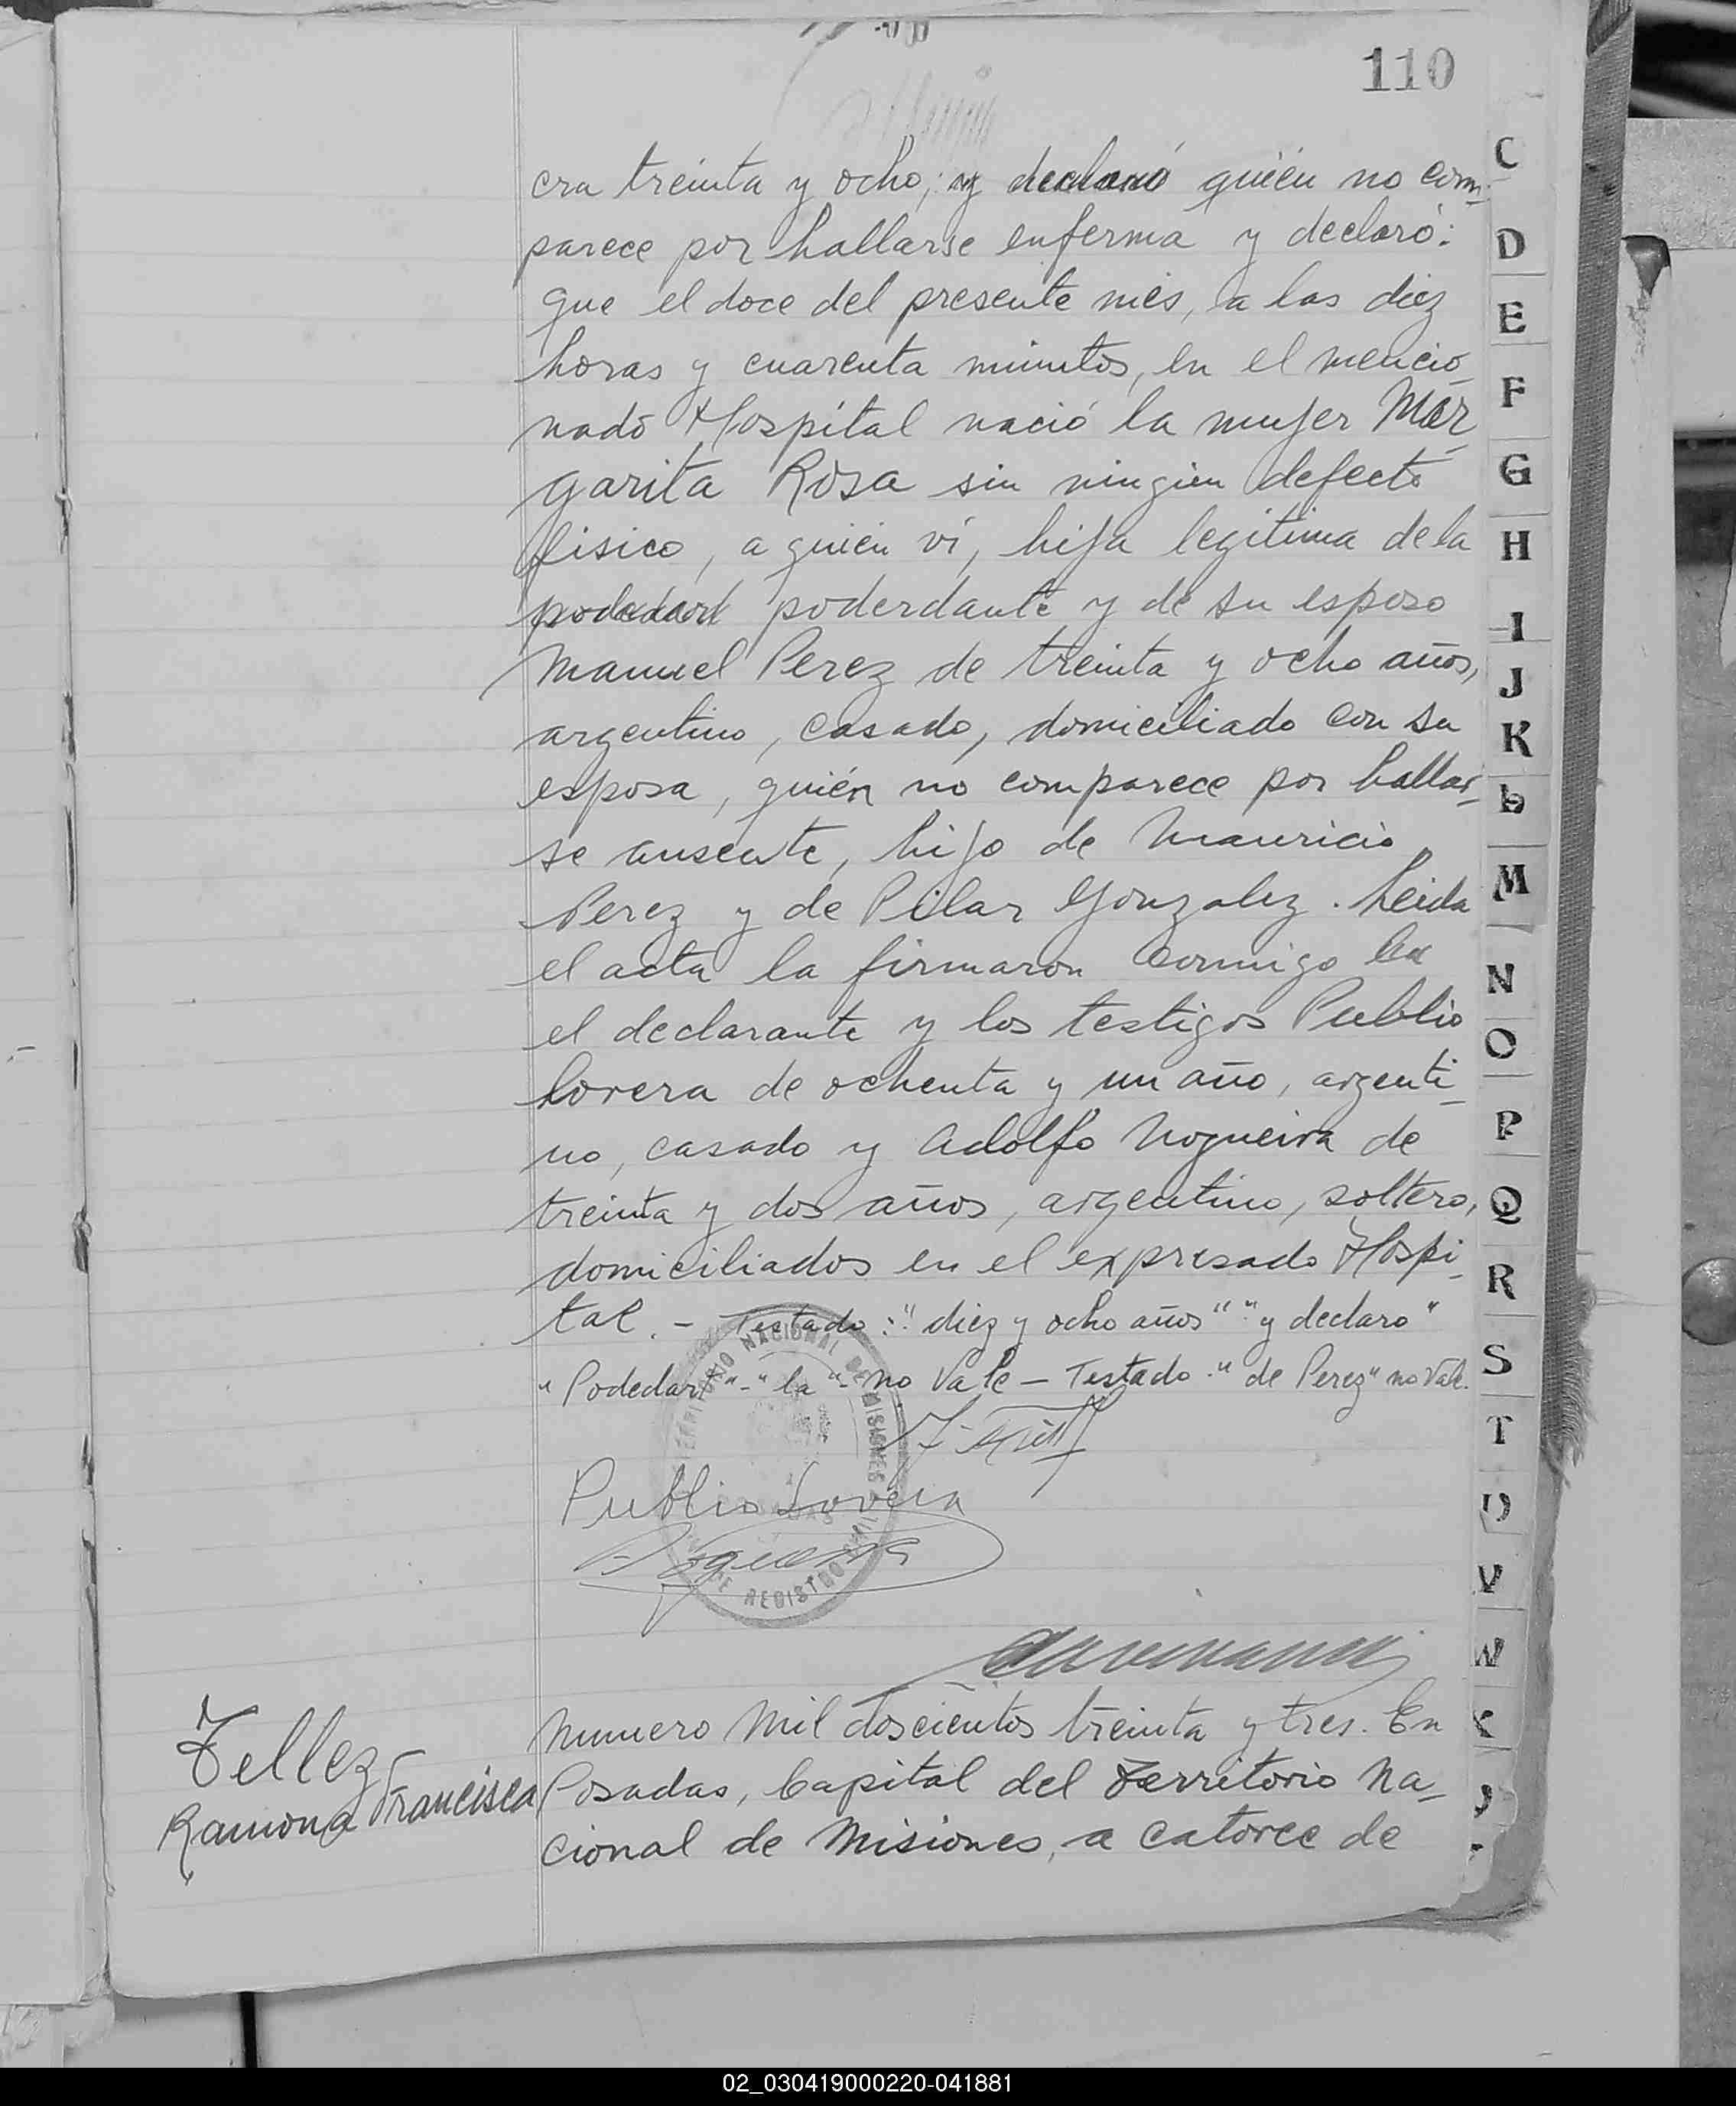 110
cra treinta y ocho; y declaró quién no com-
parece por hallarse enferma y declaró:
que el doce del presente més, a las diez
horas y cuarenta minutos, en el mencio-
nado Hospital nació la mujer Mar-
garita Rosa sin ningún defecto
físico, a quién ví, hija legítima de la
podedart poderdante y de su esposo
Manuel Perez de treinta y ocho años,
argentino, casado, domiciliado con su
esposa, quién no comparece por hallar-
se ausente, hijo de Mauricio
Perez y de Pilar Gonzalez. Leida
el acta la firmaron conmigo la
el declarante y los testigos Publio
Lovera de ochenta y un año, argenti-
no, casado y Adolfo Nogueira de
treinta y dos años, argentino, soltero,
domiciliados en el expresado Hospi-
tal. - Testado: "diez y ocho años" "y declaro"
"Podedart" - "la" - no Vale - Testado "de Perez" no Vale.
Publio Lovera
TERRITORIO NACIONAL DE MISIONES
REGISTRO CIVIL
Tellez
Ramona Francisca
Numero Mil doscientos treinta y tres. En
Posadas, Capital del Territorio Na-
cional de Misiones, a catorce de
C
D
E
F
G
H
I
J
K
L
M
N
O
P
Q
R
S
T
U
V
W
X
02_030419000220-041881